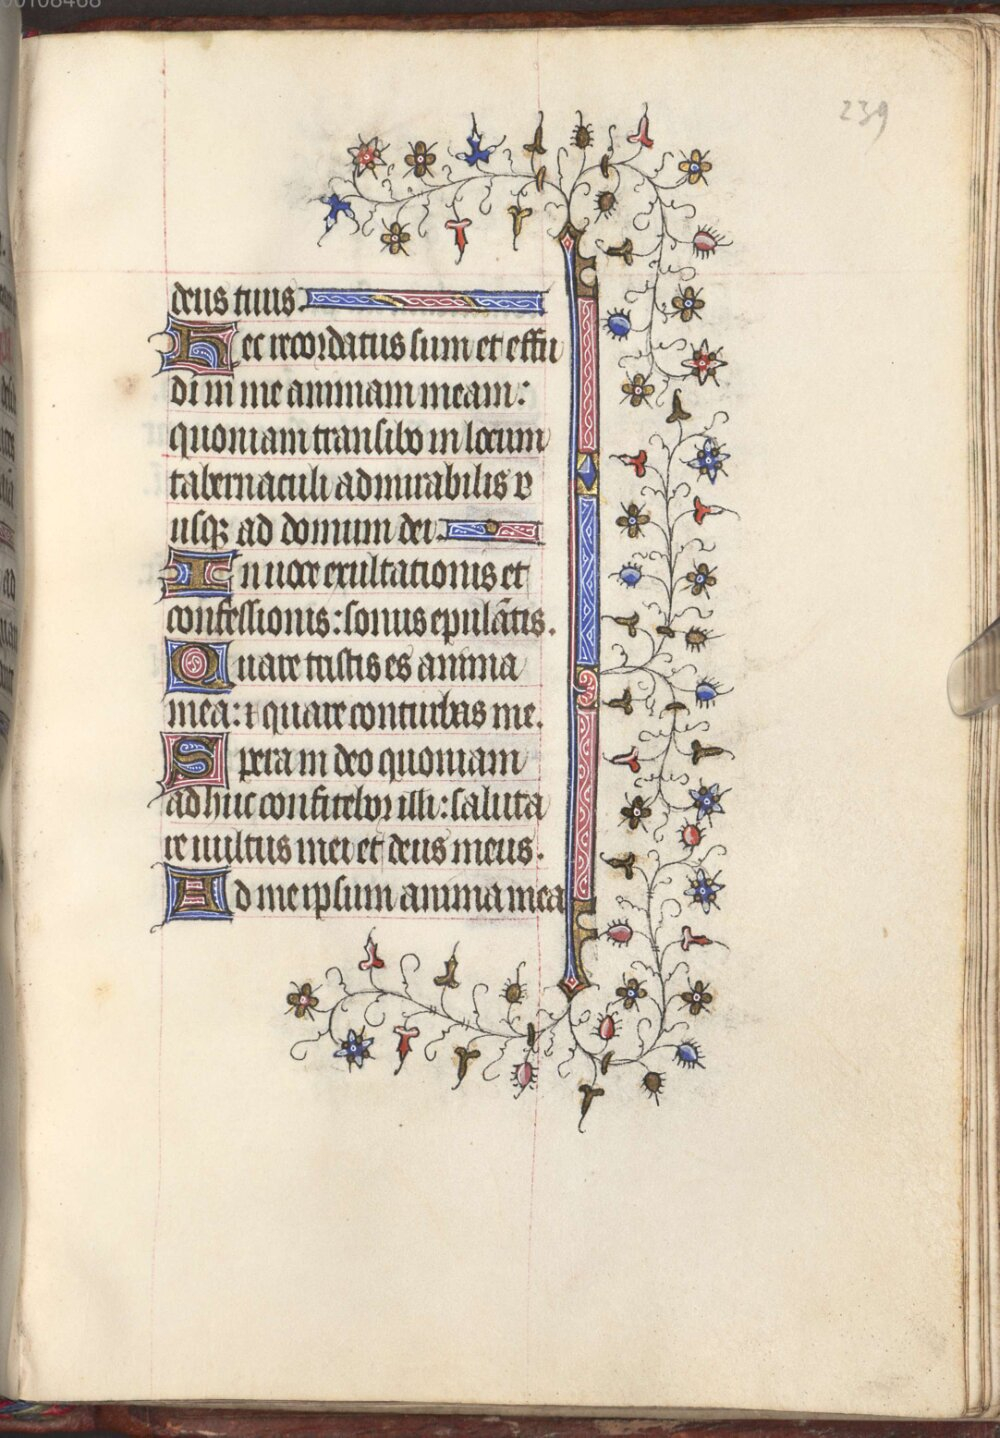 239
deus tuus.
Hec recordatus sum et effu
di in me animam meam:
quoniam transibo in locum
tabernaculi admirabilis v
usqꝫ ad domum dei.
In uoce exultationis et
confessionis: sonus epulātis.
Quare tristis es anima
mea: ⁊ quare conturbas me.
Spera in deo quoniam
adhuc confitebor illi: saluta
re uultus mei et deus meus.
Ad me ipsum anima mea